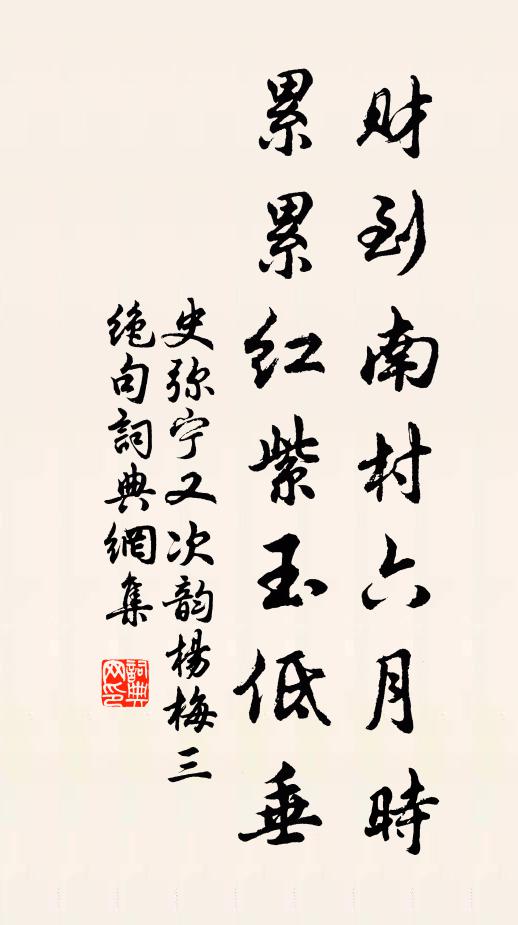 财到南村六月時
累累红紫玉低垂
史弥宁又次韵楊梅三
绝句詞典網集
詞典网印